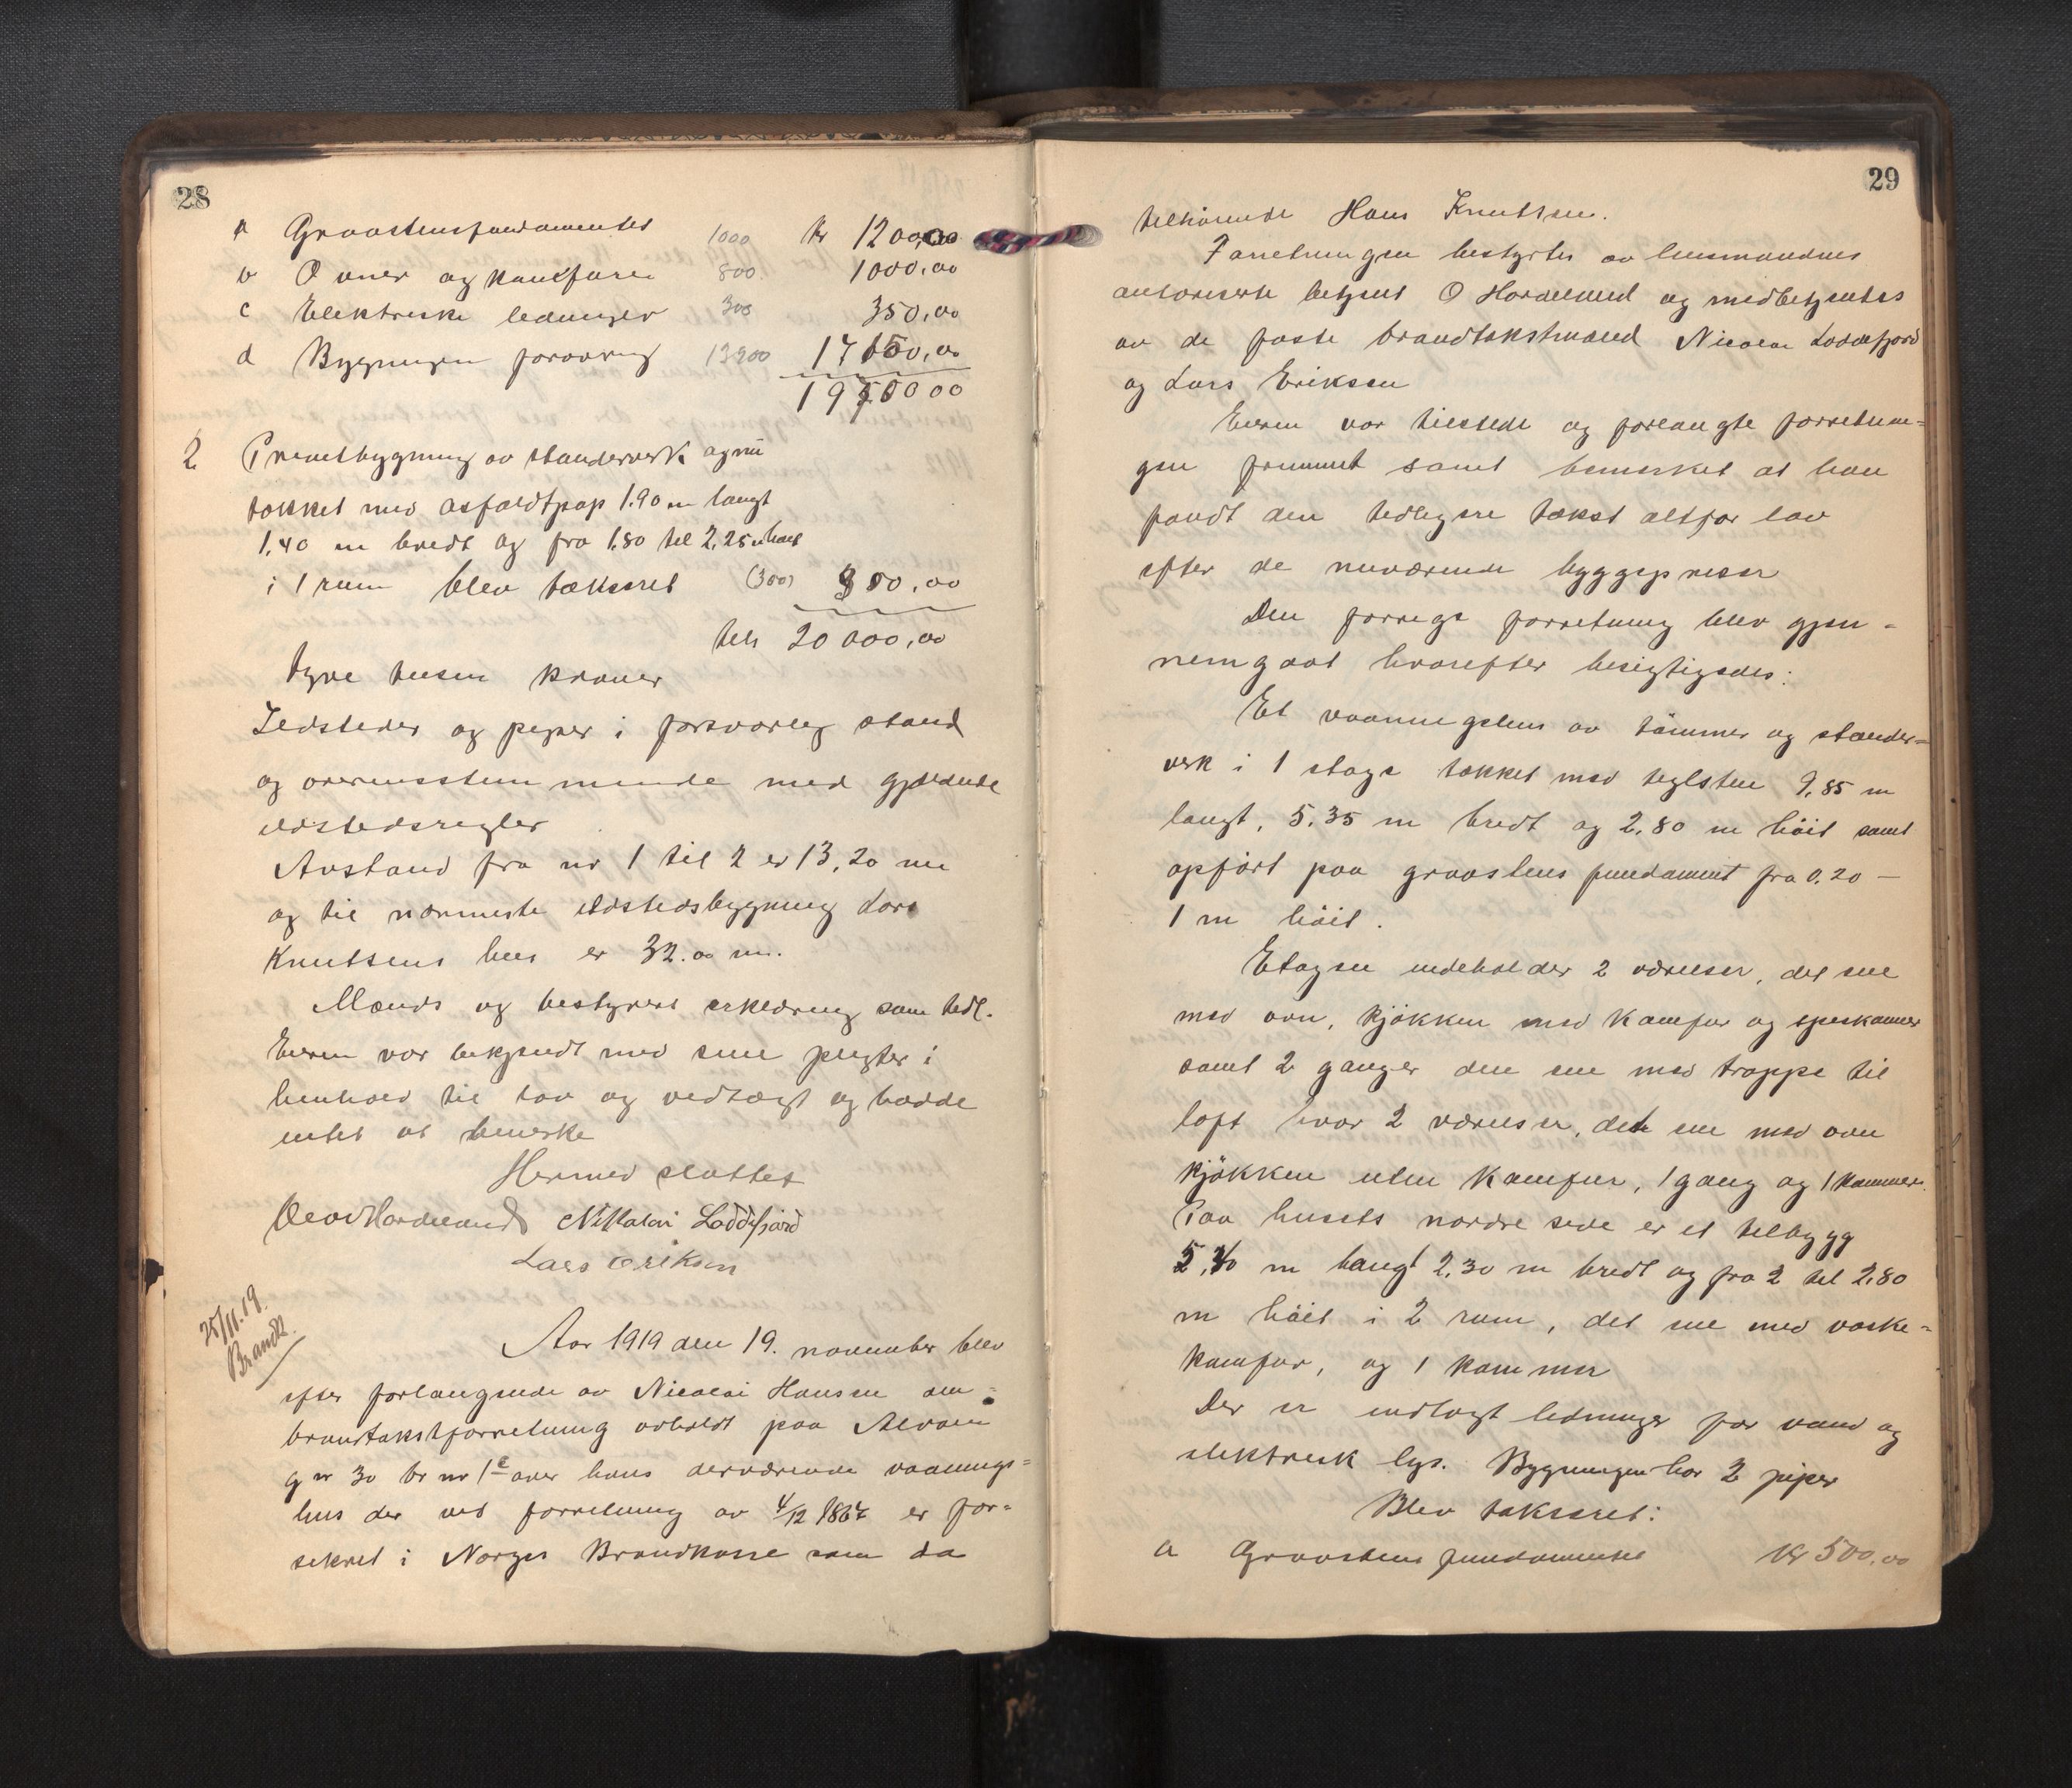 28
a Graastensfundamentet 1000 kr 1200,00
b Ovner og komfurer 800. 1000,00
c Elektriske ledninger 300 350,00
d Bygningen forøvrig 13200 17150,00
19700 00
2 Privetbygning av standerverk og nu
tækket med asfaldtpap 1.90 m langt
1,40 m bredt og fra 1,80 til 2,25 m høit
i 1 rum blev takseret (300) 300,00
tils 20 000,00
tyve tusen kroner
Ildsteder og piper i forsvarlig stand
og overensstemmende med gjældende
ildstedsregler
Avstand fra nr 1 til 2 er 13,20 m
og til nærmeste ildstedsbygning Lars
Knutsens hus er 32.00 m.
Mænds og bestyrers erklæring som tidl.
Eieren var bekjendt med sine pligter i
henhold til lov og vedtægt og hadde
intet at bemerke
Hermed sluttet
Olav Hordelund Nikolai Loddefjord
Lars Eriksen
25/11.19.
Brandt.
Aar 1919 den 19. november blev
efter forlangende av Nicolai Hansen om-
brandtakstforretning avholdt paa Alvøen
g nr 30 br nr 1 over hans derværende vaanings-
hus der ved forretning av 4/12 1867 er for-
sikret i Norges Brandkasse som da
29
tilhørende Hans Knutsen.
Forretningen bestyrtes av lensmandens
autoriserte betjent O Hordelund og medbetjentes
av de faste brandtakstmænd Nicolai Loddefjord
og Lars Eriksen
Eieren var tilstede og forlangte forretnin-
gen fremmet samt bemerket at han
fandt den tidligere takst altfor lav
efter de nuværende byggepriser
Den forrige forretning blev gjen-
nemgaat hvorefter besigtigedes:
Et vaaningshus av tømmer og stander-
verk i 1 etage tækket med teglsten 9,85 m
langt, 5,35 m bredt og 2,80 m høit samt
opført paa graastens fundament fra 0,20 -
1 m høit.
Etagen indeholder 2 værelser, det ene
med ovn, kjøkken med komfur og spiskammer
samt 2 ganger den ene med trappe til
loft hvor 2 værelser, det ene med ovn
kjøkken uten komfur, 1 gang og 1 kammer.
Paa husets nordre side er et tilbygg
5,40 m langt 2,30 m bredt og fra 2 til 2,80
m høit i 2 rum, det ene med vaske-
komfur, og 1 kammer
Der er indlagt ledninger for vand og
elektrisk lys. Bygningen har 2 piper
Blev takseret:
a Graastens fundamentet kr 500,00